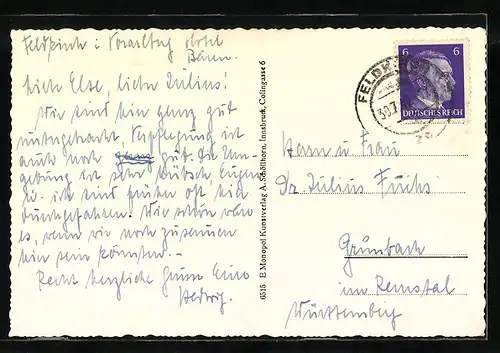 Feldkirch i. Vorarlbg Hotel
Bären.
Liebe Else, lieber Julius!
Wir sind hier ganz gut
untergebracht Verpflegung ist
auch noch gut. Die Um-
gebung ist sehr hübsch Eugen
u. ich sind früher oft hier
durchgefahren. Wie schön wäre
es, wenn wir noch zusammen
hier sein könnten.-
Recht herzliche Grüsse Eure
Hedwig.
6515 E Monopol Kunstverlag A. Schöllhorn, Innsbruck, Colingasse 6
6 6
DEUTSCHES REICH
FELDK
30.7
Herrn u Frau
Dr Julius Fuchs
Grünbach
im Remstal
Württemberg